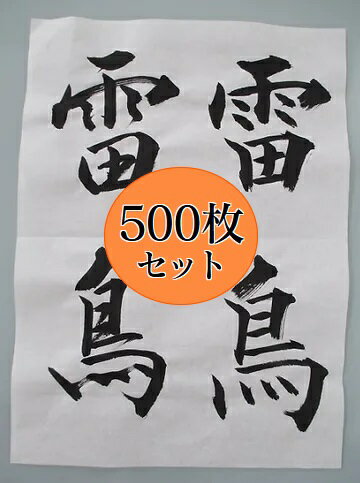 雷鳥
雷鳥
500枚
セット